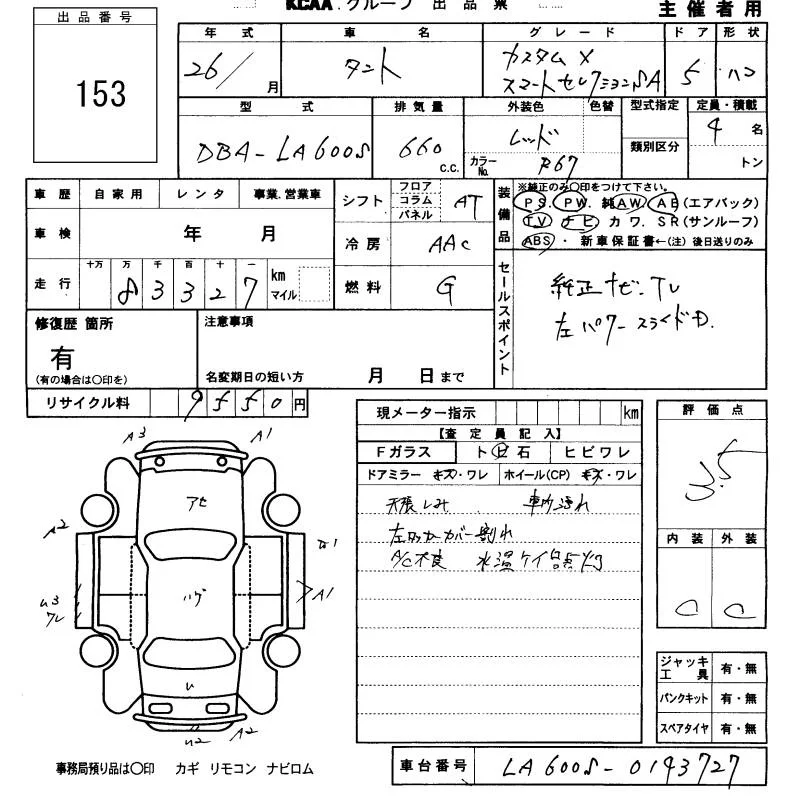 KCAA グループ 出品票
主催者用
出品番号
153
年式 車名 グレード ドア 形状
26/ 月 タント カスタムX スマートセレクションSA 5 ハコ
型式 排気量 外装色 色替 型式指定 定員・積載
DBA-LA600S 660 c.c. レッド カラーNo. R67 類別区分 4名 トン
車歴 自家用 レンタ 事業.営業車
車検 年 月
走行 十万 万 千 百 十 一 km マイル
83327
シフト フロア コラム パネル AT
冷房 AAC
燃料 G
装備品 ※純正のみ〇印をつけて下さい。
PS. PW. 純AW. AB(エアバック)
TV ナビ カワ. SR(サンルーフ)
ABS・新車保証書←(注)後日送りのみ
セールスポイント
純正ナビ. TV
左パワースライドD.
修復歴 箇所
有
(有の場合は〇印を)
注意事項
名変期日の短い方 月 日まで
リサイクル料 9550円
現メーター指示 km
【査定員記入】
Fガラス ト ビ 石 ヒビワレ
ドアミラー キズ・ワレ ホイール(CP) キズ・ワレ
天張しみ 車内汚れ
左ロッカーカバー割れ
A/C不良 水温ケイ点灯
評価点
3.5
内装 外装
C C
A3 A1
アヒ
A2
ハゲ
A1
ワレ
A2
ジャッキ工具 有・無
パンクキット 有・無
スペアタイヤ 有・無
事務局預り品は〇印 カギ リモコン ナビロム
車台番号 LA600S-0193727